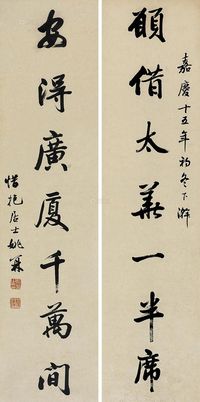 嘉慶十五年初冬下澣
願借太華一半席
安得廣厦千萬间
惜抱居士姚鼐